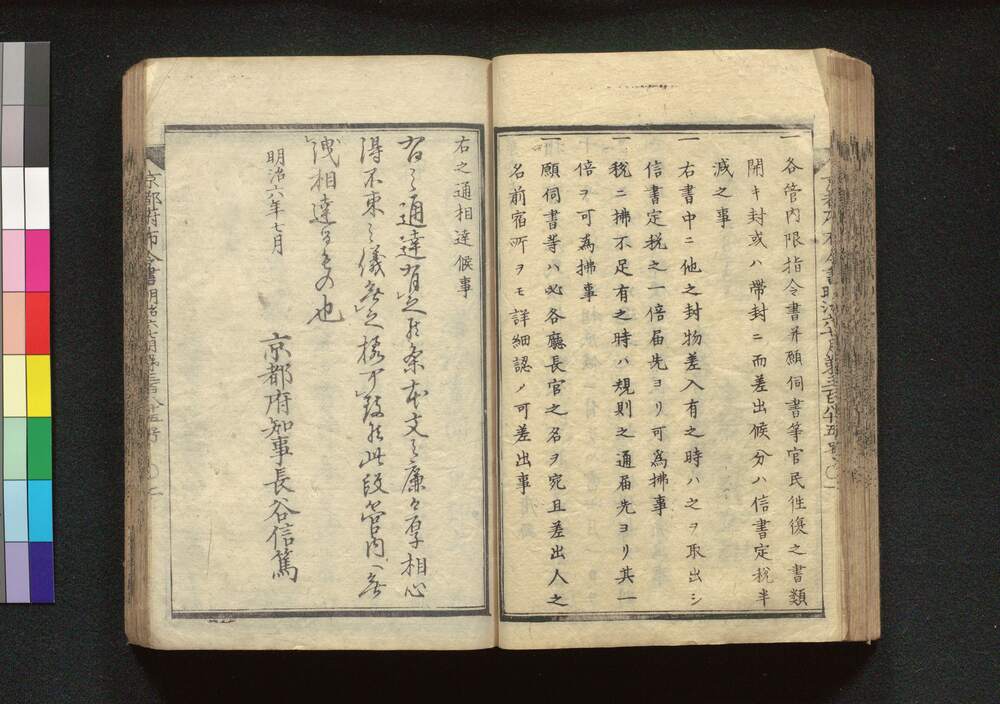 一 各管内限指令書并願伺書等官民往復之書類
開キ封或ハ帯封ニ而差出候分ハ信書定税半
減之事
一 右書中ニ他之封物差入有之時ハ之ヲ取出シ
信書定税之一倍届先ヨリ可為拂事
一 税ニ拂不足有之時ハ規則之通届先ヨリ其一
倍ヲ可為拂事
一 願伺書等ハ必各廳長官之名ヲ宛且差出人之
名前宿所ヲモ詳細認メ可差出事
右之通相達候事
右之通達有之候条本文之廉々厚相心
得不束之儀無之様可致候此段管内無
洩相達るもの也
明治六年七月
京都府知事長谷信篤
京都府布令書明治六七月第三百八十五号